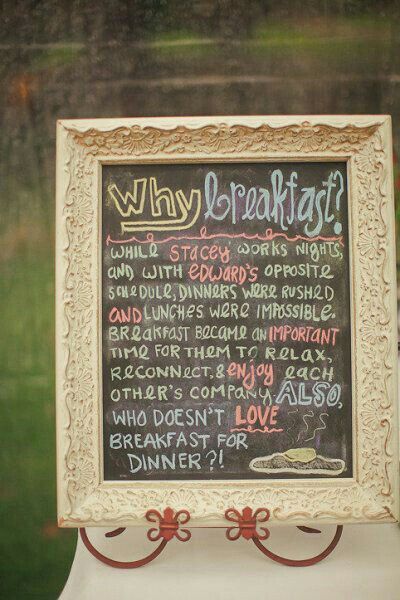 Why breakfast?
WHILE STACEY WORKS NIGHTS,
AND WITH EDWARD'S OPPOSITE
SCHEDULE, DINNERS WERE RUSHED
AND LUNCHES WERE IMPOSSIBLE.
BREAKFAST BECAME AN IMPORTANT
TIME FOR THEM TO RELAX,
RECONNECT, & enjoy EACH
OTHER'S COMPANY. ALSO,
WHO DOESN'T LOVE
BREAKFAST FOR
DINNER?!